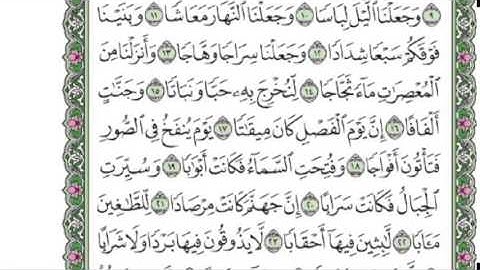 ٩ وَجَعَلْنَا ٱلَّيْلَ لِبَاسًا ١٠ وَجَعَلْنَا ٱلنَّهَارَ مَعَاشًا ١١ وَبَنَيْنَا
فَوْقَكُمْ سَبْعًا شِدَادًا ١٢ وَجَعَلْنَا سِرَاجًا وَهَّاجًا ١٣ وَأَنزَلْنَا مِنَ
ٱلْمُعْصِرَٰتِ مَآءً ثَجَّاجًا ١٤ لِّنُخْرِجَ بِهِۦ حَبًّا وَنَبَاتًا ١٥ وَجَنَّٰتٍ
أَلْفَافًا ١٦ إِنَّ يَوْمَ ٱلْفَصْلِ كَانَ مِيقَٰتًا ١٧ يَوْمَ يُنفَخُ فِى ٱلصُّورِ
فَتَأْتُونَ أَفْوَاجًا ١٨ وَفُتِحَتِ ٱلسَّمَآءُ فَكَانَتْ أَبْوَٰبًا ١٩ وَسُيِّرَتِ
ٱلْجِبَالُ فَكَانَتْ سَرَابًا ٢٠ إِنَّ جَهَنَّمَ كَانَتْ مِرْصَادًا ٢١ لِّلطَّٰغِينَ
مَـَٔابًا ٢٢ لَّٰبِثِينَ فِيهَآ أَحْقَابًا ٢٣ لَّا يَذُوقُونَ فِيهَا بَرْدًا وَلَا شَرَابًا